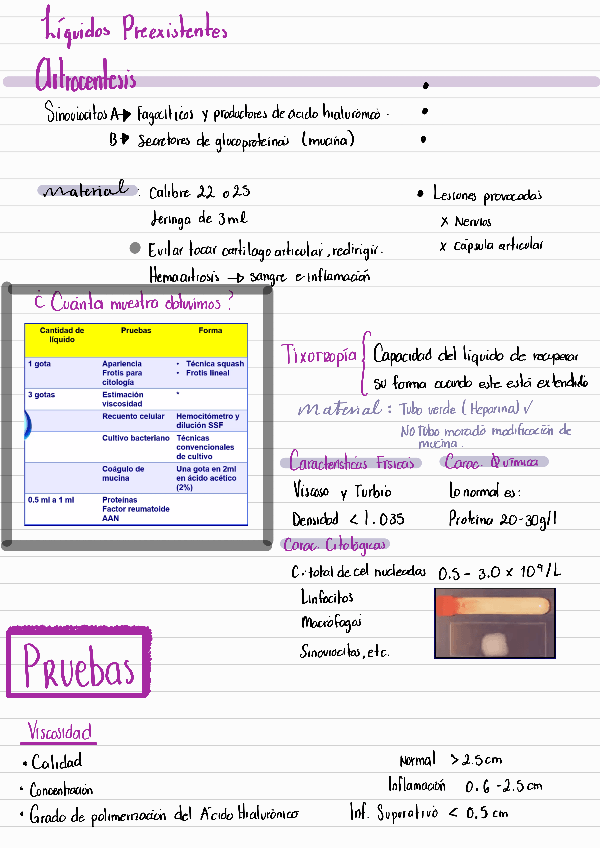 Líquidos Preexistentes
Artrocentesis
Sinoviocitos A → Fagocíticos y productores de ácido hialurónico.
B → Secretores de glucoproteínas (mucina)
material: Calibre 22 o 25
Jeringa de 3ml
Evitar tocar cartílago articular, redirigir.
Hemoartrosis → sangre e inflamación
• Lesiones provocadas
x Nervios
x Cápsula articular
¿Cuánta muestra obtuvimos?
Cantidad de líquido Pruebas Forma
1 gota Apariencia • Técnica squash
Frotis para citología • Frotis lineal
3 gotas Estimación viscosidad *
Recuento celular Hemocitómetro y dilución SSF
Cultivo bacteriano Técnicas convencionales de cultivo
Coágulo de mucina Una gota en 2ml en ácido acético (2%)
0.5 ml a 1 ml Proteínas
Factor reumatoide
AAN
Tixotropía { Capacidad del líquido de recuperar
su forma cuando este está extendido
material: Tubo verde (Heparina) ✓
No Tubo morado modificación de
mucina.
Características Físicas
Viscoso y Turbio
Densidad < 1.035
Carac. Química
Lo normal es:
Proteína 20-30g/l
Carac. Citológicas
C. total de cel nucleadas 0.5 - 3.0 x 10⁹/L
Linfocitos
Macrófagos
Sinoviocitos, etc.
Pruebas
Viscosidad
• Calidad
• Concentración
• Grado de polimerización del Ácido Hialurónico
Normal > 2.5cm
Inflamación 0.6 - 2.5cm
Inf. Supurativo < 0.5 cm